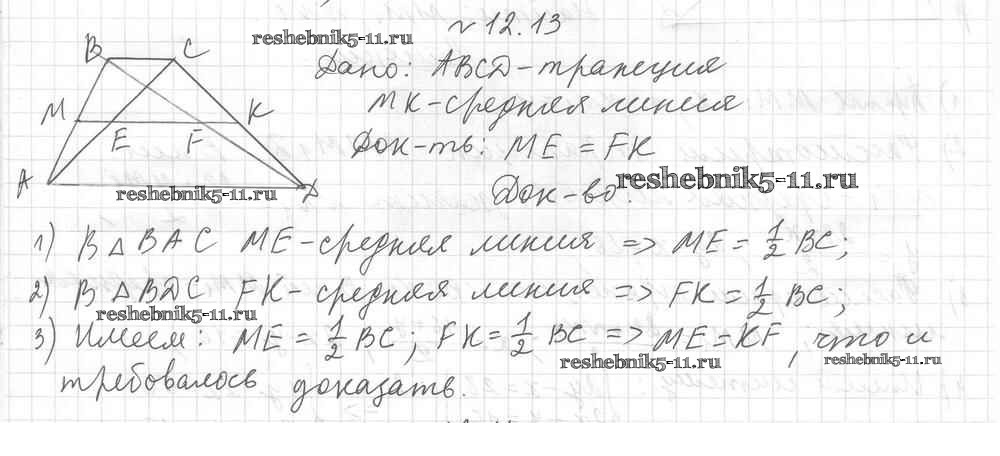 № 12.13
reshebnik5-11.ru
Дано: ABCD-трапеция
MK-средняя линия
Док-ть: ME = FK
Док-во:
reshebnik5-11.ru
B C
M K
E F
A D
reshebnik5-11.ru
1) В △ BAC ME-средняя линия => ME = 1/2 BC;
2) В △BDC FK-средняя линия => FK = 1/2 BC;
reshebnik5-11.ru
3) Имеем: ME = 1/2 BC; FK = 1/2 BC => ME=KF, что и
reshebnik5-11.ru
reshebnik5-11.ru
требовалось доказать.